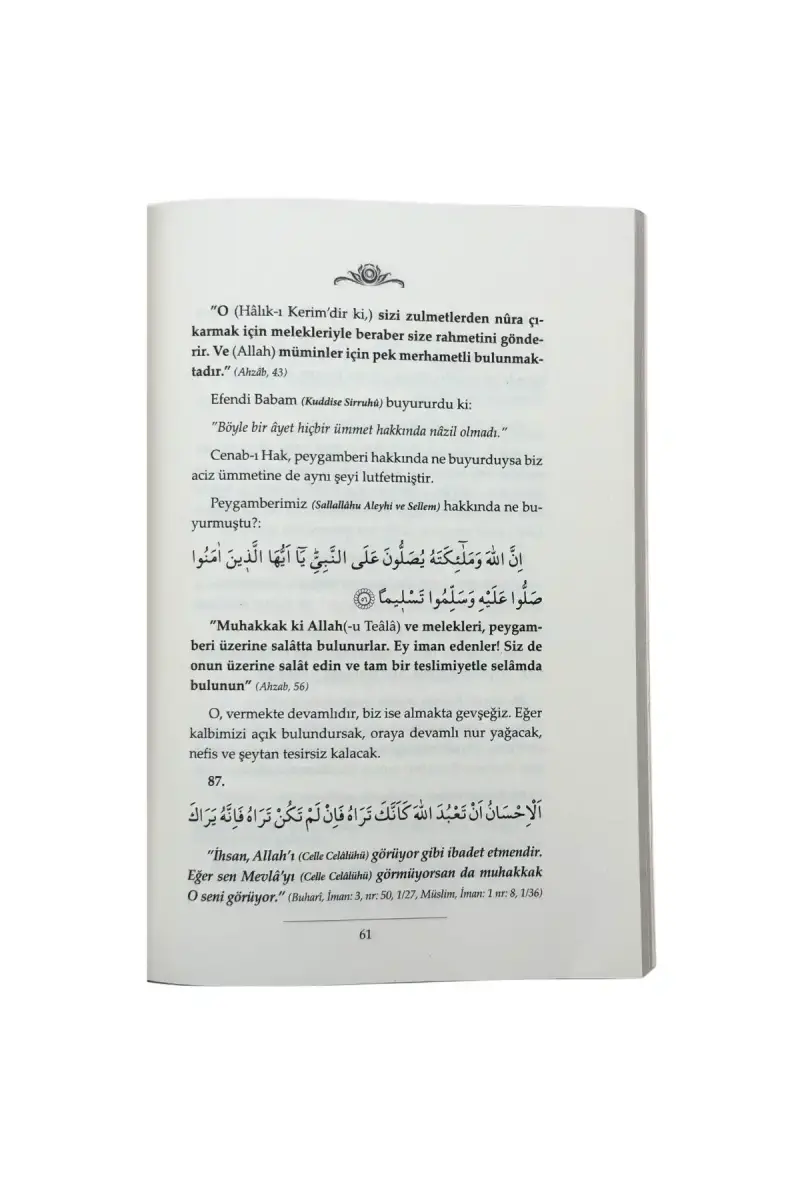 "O (Hâlık-ı Kerim'dir ki,) sizi zulmetlerden nûra çı-
karmak için melekleriyle beraber size rahmetini gönde-
rir. Ve (Allah) müminler için pek merhametli bulunmak-
tadır." (Ahzâb, 43)
Efendi Babam (Kuddise Sirruhû) buyururdu ki:
"Böyle bir âyet hiçbir ümmet hakkında nâzil olmadı."
Cenab-ı Hak, peygamberi hakkında ne buyurduysa biz
aciz ümmetine de aynı şeyi lutfetmiştir.
Peygamberimiz (Sallallâhu Aleyhi ve Sellem) hakkında ne bu-
yurmuştu?:
اِنَّ اللّٰهَ وَمَلٰٓئِكَتَهُ يُصَلُّونَ عَلَى النَّبِيِّۜ يَٓا اَيُّهَا الَّذ۪ينَ اٰمَنُوا
صَلُّوا عَلَيْهِ وَسَلِّمُوا تَسْل۪يمًا ﴿٥٦﴾
"Muhakkak ki Allah(-u Teâlâ) ve melekleri, peygam-
beri üzerine salâtta bulunurlar. Ey iman edenler! Siz de
onun üzerine salât edin ve tam bir teslimiyetle selâmda
bulunun" (Ahzab, 56)
O, vermekte devamlıdır, biz ise almakta gevşeğiz. Eğer
kalbimizi açık bulundursak, oraya devamlı nur yağacak,
nefis ve şeytan tesirsiz kalacak.
87.
اَلْاِحْسَانُ اَنْ تَعْبُدَ اللّٰهَ كَاَنَّكَ تَرَاهُ فَاِنْ لَمْ تَكُنْ تَرَاهُ فَاِنَّهُ يَرَاكَ
"İhsan, Allah'ı (Celle Celâlühü) görüyor gibi ibadet etmendir.
Eğer sen Mevlâ'yı (Celle Celâlühü) görmüyorsan da muhakkak
O seni görüyor." (Buharî, İman: 3, nr: 50, 1/27, Müslim, İman: 1 nr: 8, 1/36)
61